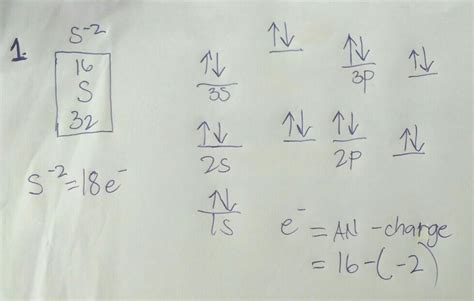 1.
S⁻²
16
S
32
S⁻² = 18e⁻
↑↓ ↑↓ ↑↓ ↑↓
3S 3p
↑↓ ↑↓ ↑↓ ↑↓
2S 2p
↑↓
1S
e⁻ = AN - charge
= 16 - (-2)